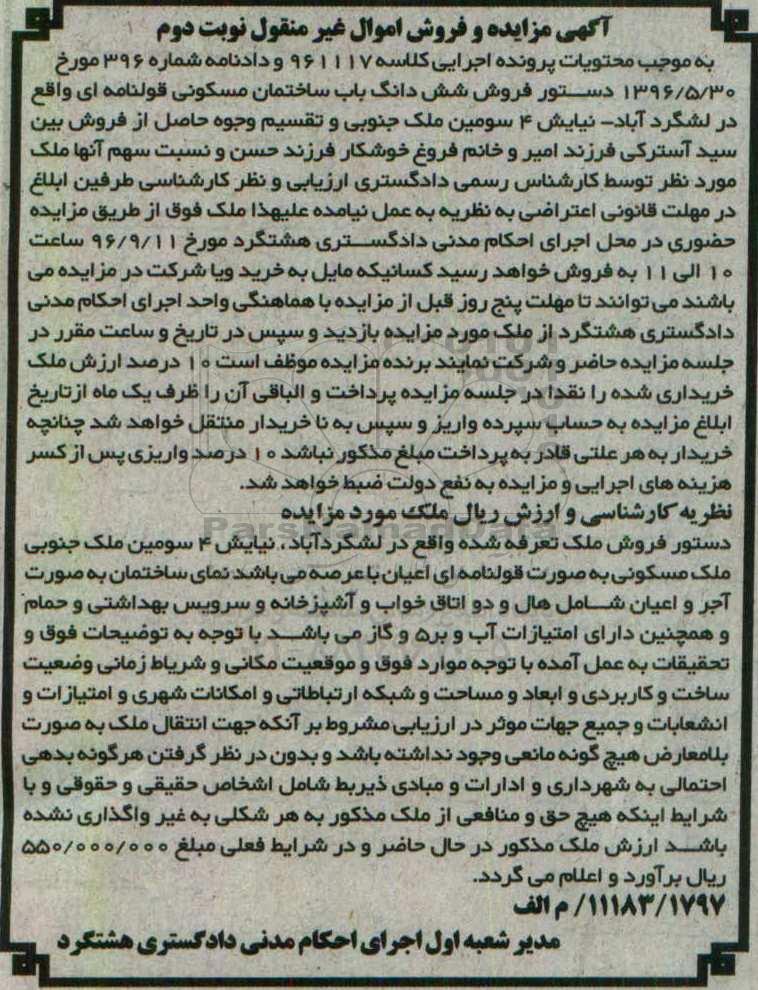 آگهی مزایده و فروش اموال غیر منقول نوبت دوم
به موجب محتویات پرونده اجرایی کلاسه ۹۶۱۱۱۷ و دادنامه شماره ۳۹۶ مورخ
۱۳۹۶/۵/۳۰ دستور فروش شش دانگ باب ساختمان مسکونی قولنامه ای واقع
در لشگرد آباد- نیایش ۴ سومین ملک جنوبی و تقسیم وجوه حاصل از فروش بین
سید آسترکی فرزند امیر و خانم فروغ خوشکار فرزند حسن و نسبت سهم آنها ملک
مورد نظر توسط کارشناس رسمی دادگستری ارزیابی و نظر کارشناسی طرفین ابلاغ
در مهلت قانونی اعتراضی به نظریه به عمل نیامده علیهذا ملک فوق از طریق مزایده
حضوری در محل اجرای احکام مدنی دادگستری هشتگرد مورخ ۹۶/۹/۱۱ ساعت
۱۰ الی ۱۱ به فروش خواهد رسید کسانیکه مایل به خرید ویا شرکت در مزایده می
باشند می توانند تا مهلت پنج روز قبل از مزایده با هماهنگی واحد اجرای احکام مدنی
دادگستری هشتگرد از ملک مورد مزایده بازدید و سپس در تاریخ و ساعت مقرر در
جلسه مزایده حاضر و شرکت نمایند برنده مزایده موظف است ۱۰ درصد ارزش ملک
خریداری شده را نقدا در جلسه مزایده پرداخت و الباقی آن را ظرف یک ماه ازتاریخ
ابلاغ مزایده به حساب سپرده واریز و سپس به نا خریدار منتقل خواهد شد چنانچه
خریدار به هر علتی قادر به پرداخت مبلغ مذکور نباشد ۱۰ درصد واریزی پس از کسر
هزینه های اجرایی و مزایده به نفع دولت ضبط خواهد شد.
نظریه کارشناسی و ارزش ریال ملک مورد مزایده
دستور فروش ملک تعرفه شده واقع در لشگردآباد، نیایش ۴ سومین ملک جنوبی
ملک مسکونی به صورت قولنامه ای اعیان با عرصه می باشد نمای ساختمان به صورت
آجر و اعیان شامل هال و دو اتاق خواب و آشپزخانه و سرویس بهداشتی و حمام
و همچنین دارای امتیازات آب و بر۵ و گاز می باشد با توجه به توضیحات فوق و
تحقیقات به عمل آمده با توجه موارد فوق و موقعیت مکانی و شریاط زمانی وضعیت
ساخت و کاربردی و ابعاد و مساحت و شبکه ارتباطاتی و امکانات شهری و امتیازات و
انشعابات و جمیع جهات موثر در ارزیابی مشروط بر آنکه جهت انتقال ملک به صورت
بلامعارض هیچ گونه مانعی وجود نداشته باشد و بدون در نظر گرفتن هرگونه بدهی
احتمالی به شهرداری و ادارات و مبادی ذیربط شامل اشخاص حقیقی و حقوقی و با
شرایط اینکه هیچ حق و منافعی از ملک مذکور به هر شکلی به غیر واگذاری نشده
باشد ارزش ملک مذکور در حال حاضر و در شرایط فعلی مبلغ ۵۵۰/۰۰۰/۰۰۰
ریال برآورد و اعلام می گردد.
۱۱۱۸۳/۱۷۹۷/ م الف
مدیر شعبه اول اجرای احکام مدنی دادگستری هشتگرد